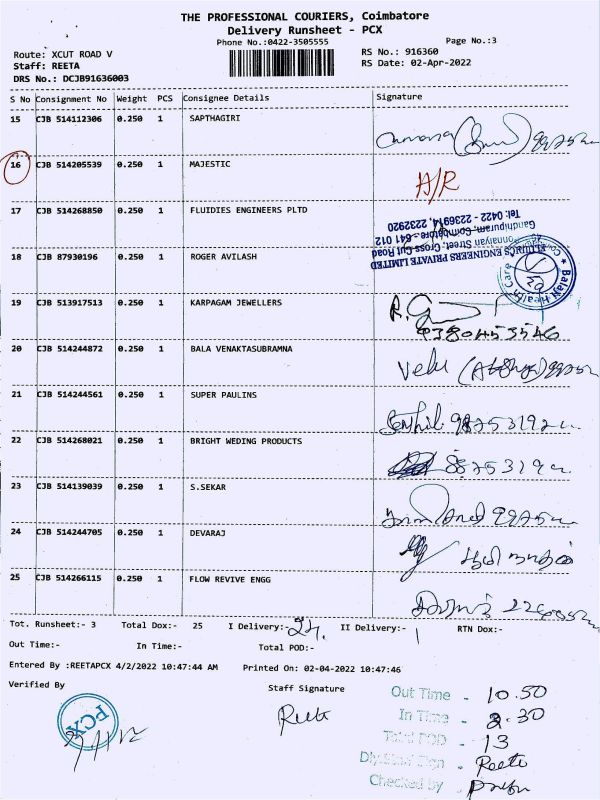 THE PROFESSIONAL COURIERS, Coimbatore
Delivery Runsheet - PCX
Phone No.:0422-3505555
Page No.:3
Route: XCUT ROAD V
RS No.: 916360
Staff: REETA
RS Date: 02-Apr-2022
DRS No.: DCJB91636003
S No Consignment No Weight PCS Consignee Details Signature
15 CJB 514112306 0.250 1 SAPTHAGIRI
16 CJB 514205539 0.250 1 MAJESTIC A/R
17 CJB 514268850 0.250 1 FLUIDIES ENGINEERS PLTD
Tel: 0422 - 2236914, 2232920
Gandhipuram, Coimbatore - 641 012
Ponnaiyan Street, Cross Cut Road
ENGINEERS PRIVATE LIMITED
Balaji Health Care
18 CJB 87930196 0.250 1 ROGER AVILASH
19 CJB 513917513 0.250 1 KARPAGAM JEWELLERS
20 CJB 514244872 0.250 1 BALA VENAKTASUBRAMNA Velu
21 CJB 514244561 0.250 1 SUPER PAULINS
22 CJB 514268021 0.250 1 BRIGHT WEDING PRODUCTS
23 CJB 514139039 0.250 1 S.SEKAR
24 CJB 514244705 0.250 1 DEVARAJ
25 CJB 514266115 0.250 1 FLOW REVIVE ENGG
Tot. Runsheet:- 3 Total Dox:- 25 I Delivery:- 24. II Delivery:- 1 RTN Dox:-
Out Time:- In Time:- Total POD:-
Entered By :REETAPCX 4/2/2022 10:47:44 AM Printed On: 02-04-2022 10:47:46
Verified By
Staff Signature
PCX
Reeta
Out Time - 10.50
In Time - 2.30
Total POD - 13
Division Sign - Reeta
Checked by